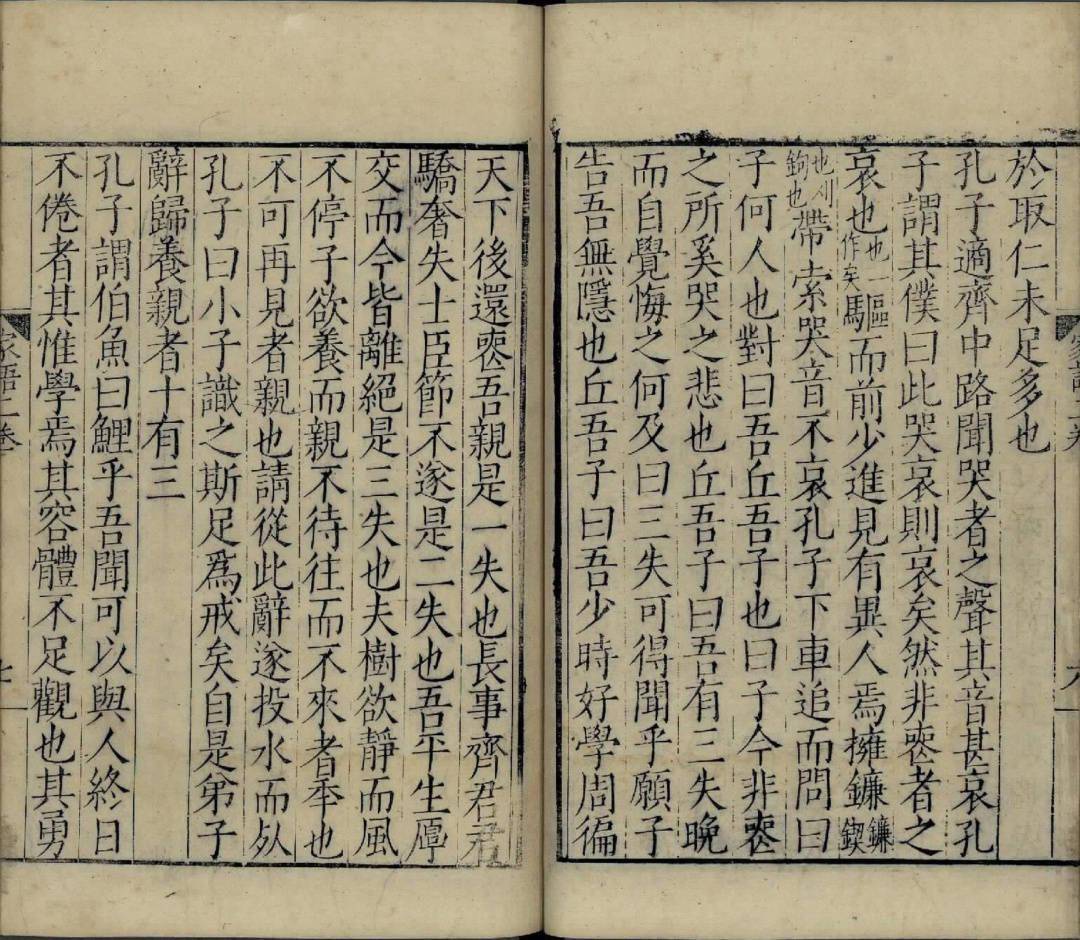 於取仁未足多也
孔子適齊中路聞哭者之聲其音甚哀孔
子謂其僕曰此哭哀則哀矣然非喪者之
哀也也一作矣驅驅而前少進見有異人焉擁鐮鐮鍥
也刈鉤也帶索哭音不哀孔子下車追而問曰
子何人也對曰吾丘吾子也曰子今非喪
之所奚哭之悲也丘吾子曰吾有三失晚
而自覺悔之何及曰三失可得聞乎願子
告吾無隱也丘吾子曰吾少時好學周徧
天下後還喪吾親是一失也長事齊君君
驕奢失士臣節不遂是二失也吾平生厚
交而今皆離絕是三失也夫樹欲靜而風
不停子欲養而親不待往而不來者年也
不可再見者親也請從此辭遂投水而死
孔子曰小子識之斯足爲戒矣自是弟子
辭歸養親者十有三
孔子謂伯魚曰鯉乎吾聞可以與人終日
不倦者其惟學焉其容體不足觀也其勇
家語二卷